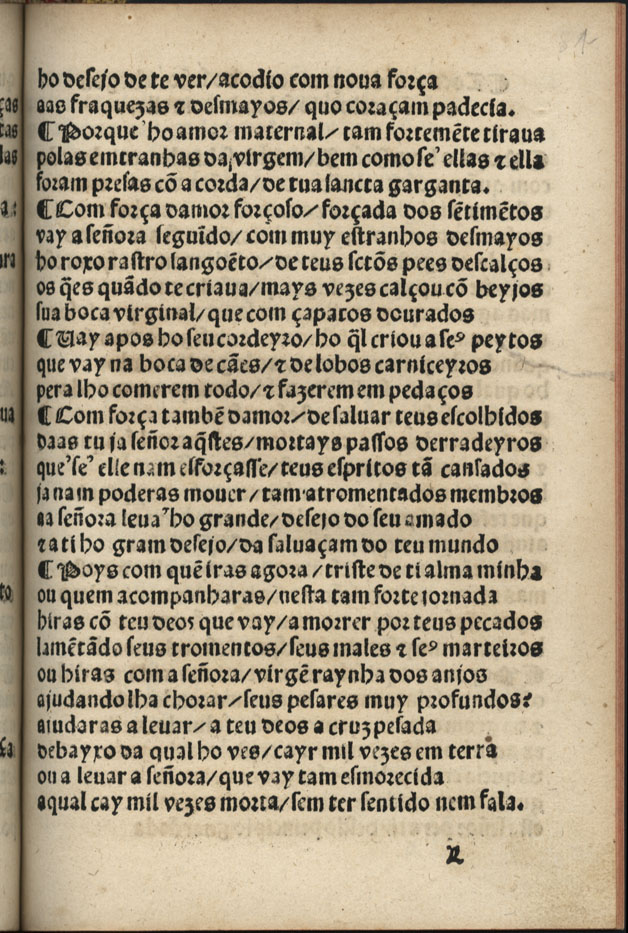 ho desejo de te ver/acodio com noua força
aas fraquezas ⁊ desmayos/ quo coraçam padecia.
¶ Porque ho amor maternal/tam fortemẽte tiraua
polas emtranhas da virgem/bem como se ellas ⁊ ella
foram presas cõ a corda/de tua sancta garganta.
¶ Com força damor forçoso/forçada dos sẽtimẽtos
vay a señora seguĩdo/com muy estranhos desmayos
ho roxo rastro sangoẽto/de teus sctõs pees descalços
os q̃es quãdo te criaua/mays vezes calçou cõ beyjos
sua boca virginal/que com çapatos dourados
¶ Uay apos ho seu cordeyro/ho q̃l criou a seꝰ peytos
que vay na boca de cães/⁊ de lobos carniceyros
pera lho comerem todo/⁊ fazerem em pedaços
¶ Com força tambẽ damor/de saluar teus escolhidos
daas tu ja señor aq̃stes/mortays passos derradeyros
que se elle nam esforçasse/teus espritos tã cansados
ja nam poderas mouer/tam atromentados membros
aa señora leua ho grande/desejo do seu amado
⁊ a ti ho gram desejo/da saluaçam do teu mundo
¶ Poys com quẽ iras agora/triste de ti alma minha
ou quem acompanharas/nesta tam forte jornada
hiras cõ teu deos que vay/a morrer por teus pecados
lamẽtãdo seus tromentos/seus males ⁊ seꝰ marteiros
ou hiras com a señora/virgẽ raynha dos anjos
ajudando lha chorar/seus pesares muy profundos?
ajudaras a leuar/a teu deos a cruz pesada
debayxo da qual ho ves/cayr mil vezes em terra
ou a leuar a señora/que vay tam esmorecida
aqual cay mil vezes morta/sem ter sentido nem fala.